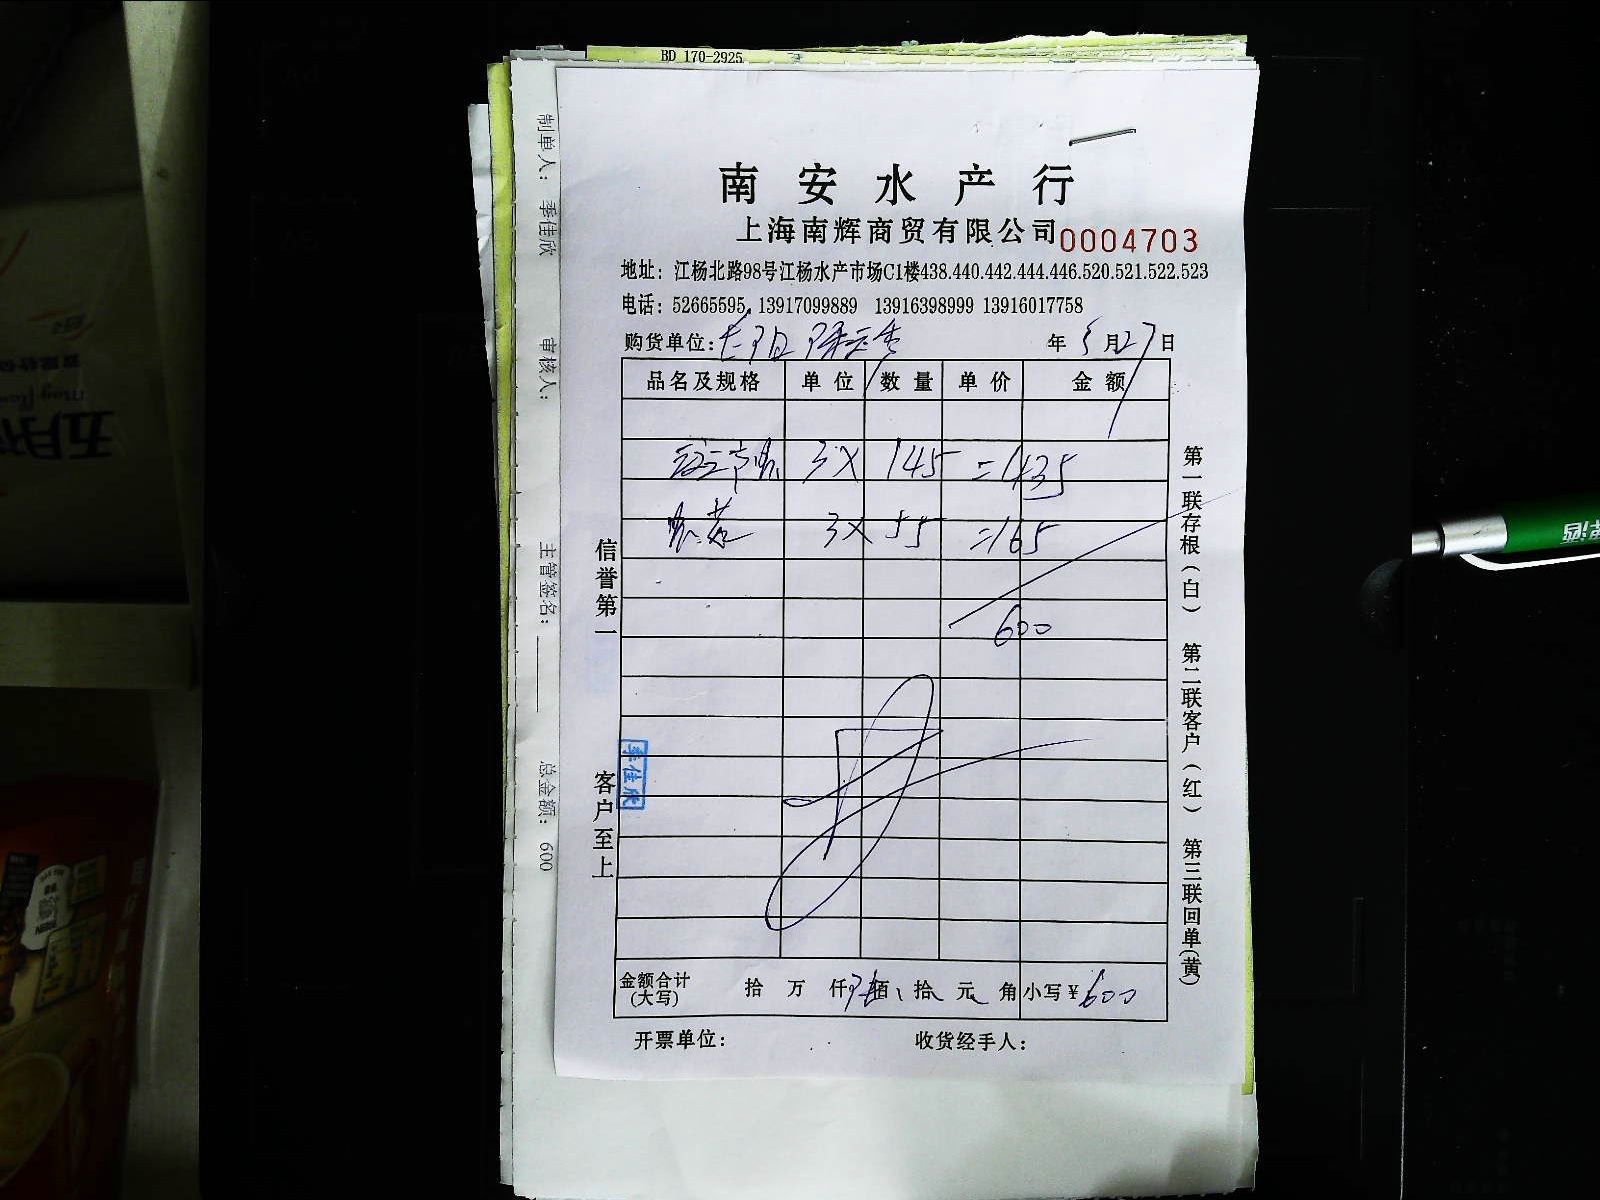 BD 170-2925
制单人: 季佳欣
审核人:
主管签名:
总金额: 600
南安水产行
上海南辉商贸有限公司 0004703
地址: 江杨北路98号江杨水产市场C1楼438.440.442.444.446.520.521.522.523
电话: 52665595 13917099889 13916398999 13916017758
购货单位: 年 5月27日
品名及规格 单位 数量 单价 金额
3X 145 =435
3X 55 =165
600
金额合计(大写) 拾 万 仟 陆佰 拾 元 角 小写¥600
开票单位: 收货经手人:
信誉第一
客户至上
季佳欣
第一联存根(白) 第二联客户(红) 第三联回单(黄)
五月花